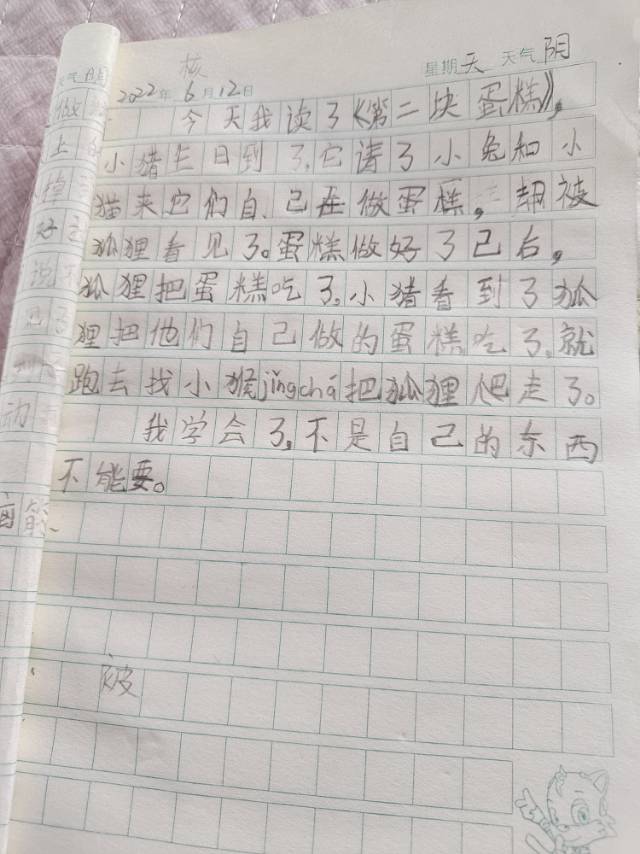 核
2022年 6月12日 星期天 天气阴
今天我读了《第二块蛋糕》,
小猪生日到了,它请了小兔和小
猫来它们自己在做蛋糕,却被
狐狸看见了。蛋糕做好了己后,
狐狸把蛋糕吃了,小猪看到了狐
狸把他们自己做的蛋糕吃了,就
跑去找小猴jǐngchá把狐狸爬走了。
我学会了,不是自己的东西
不能要。
陂